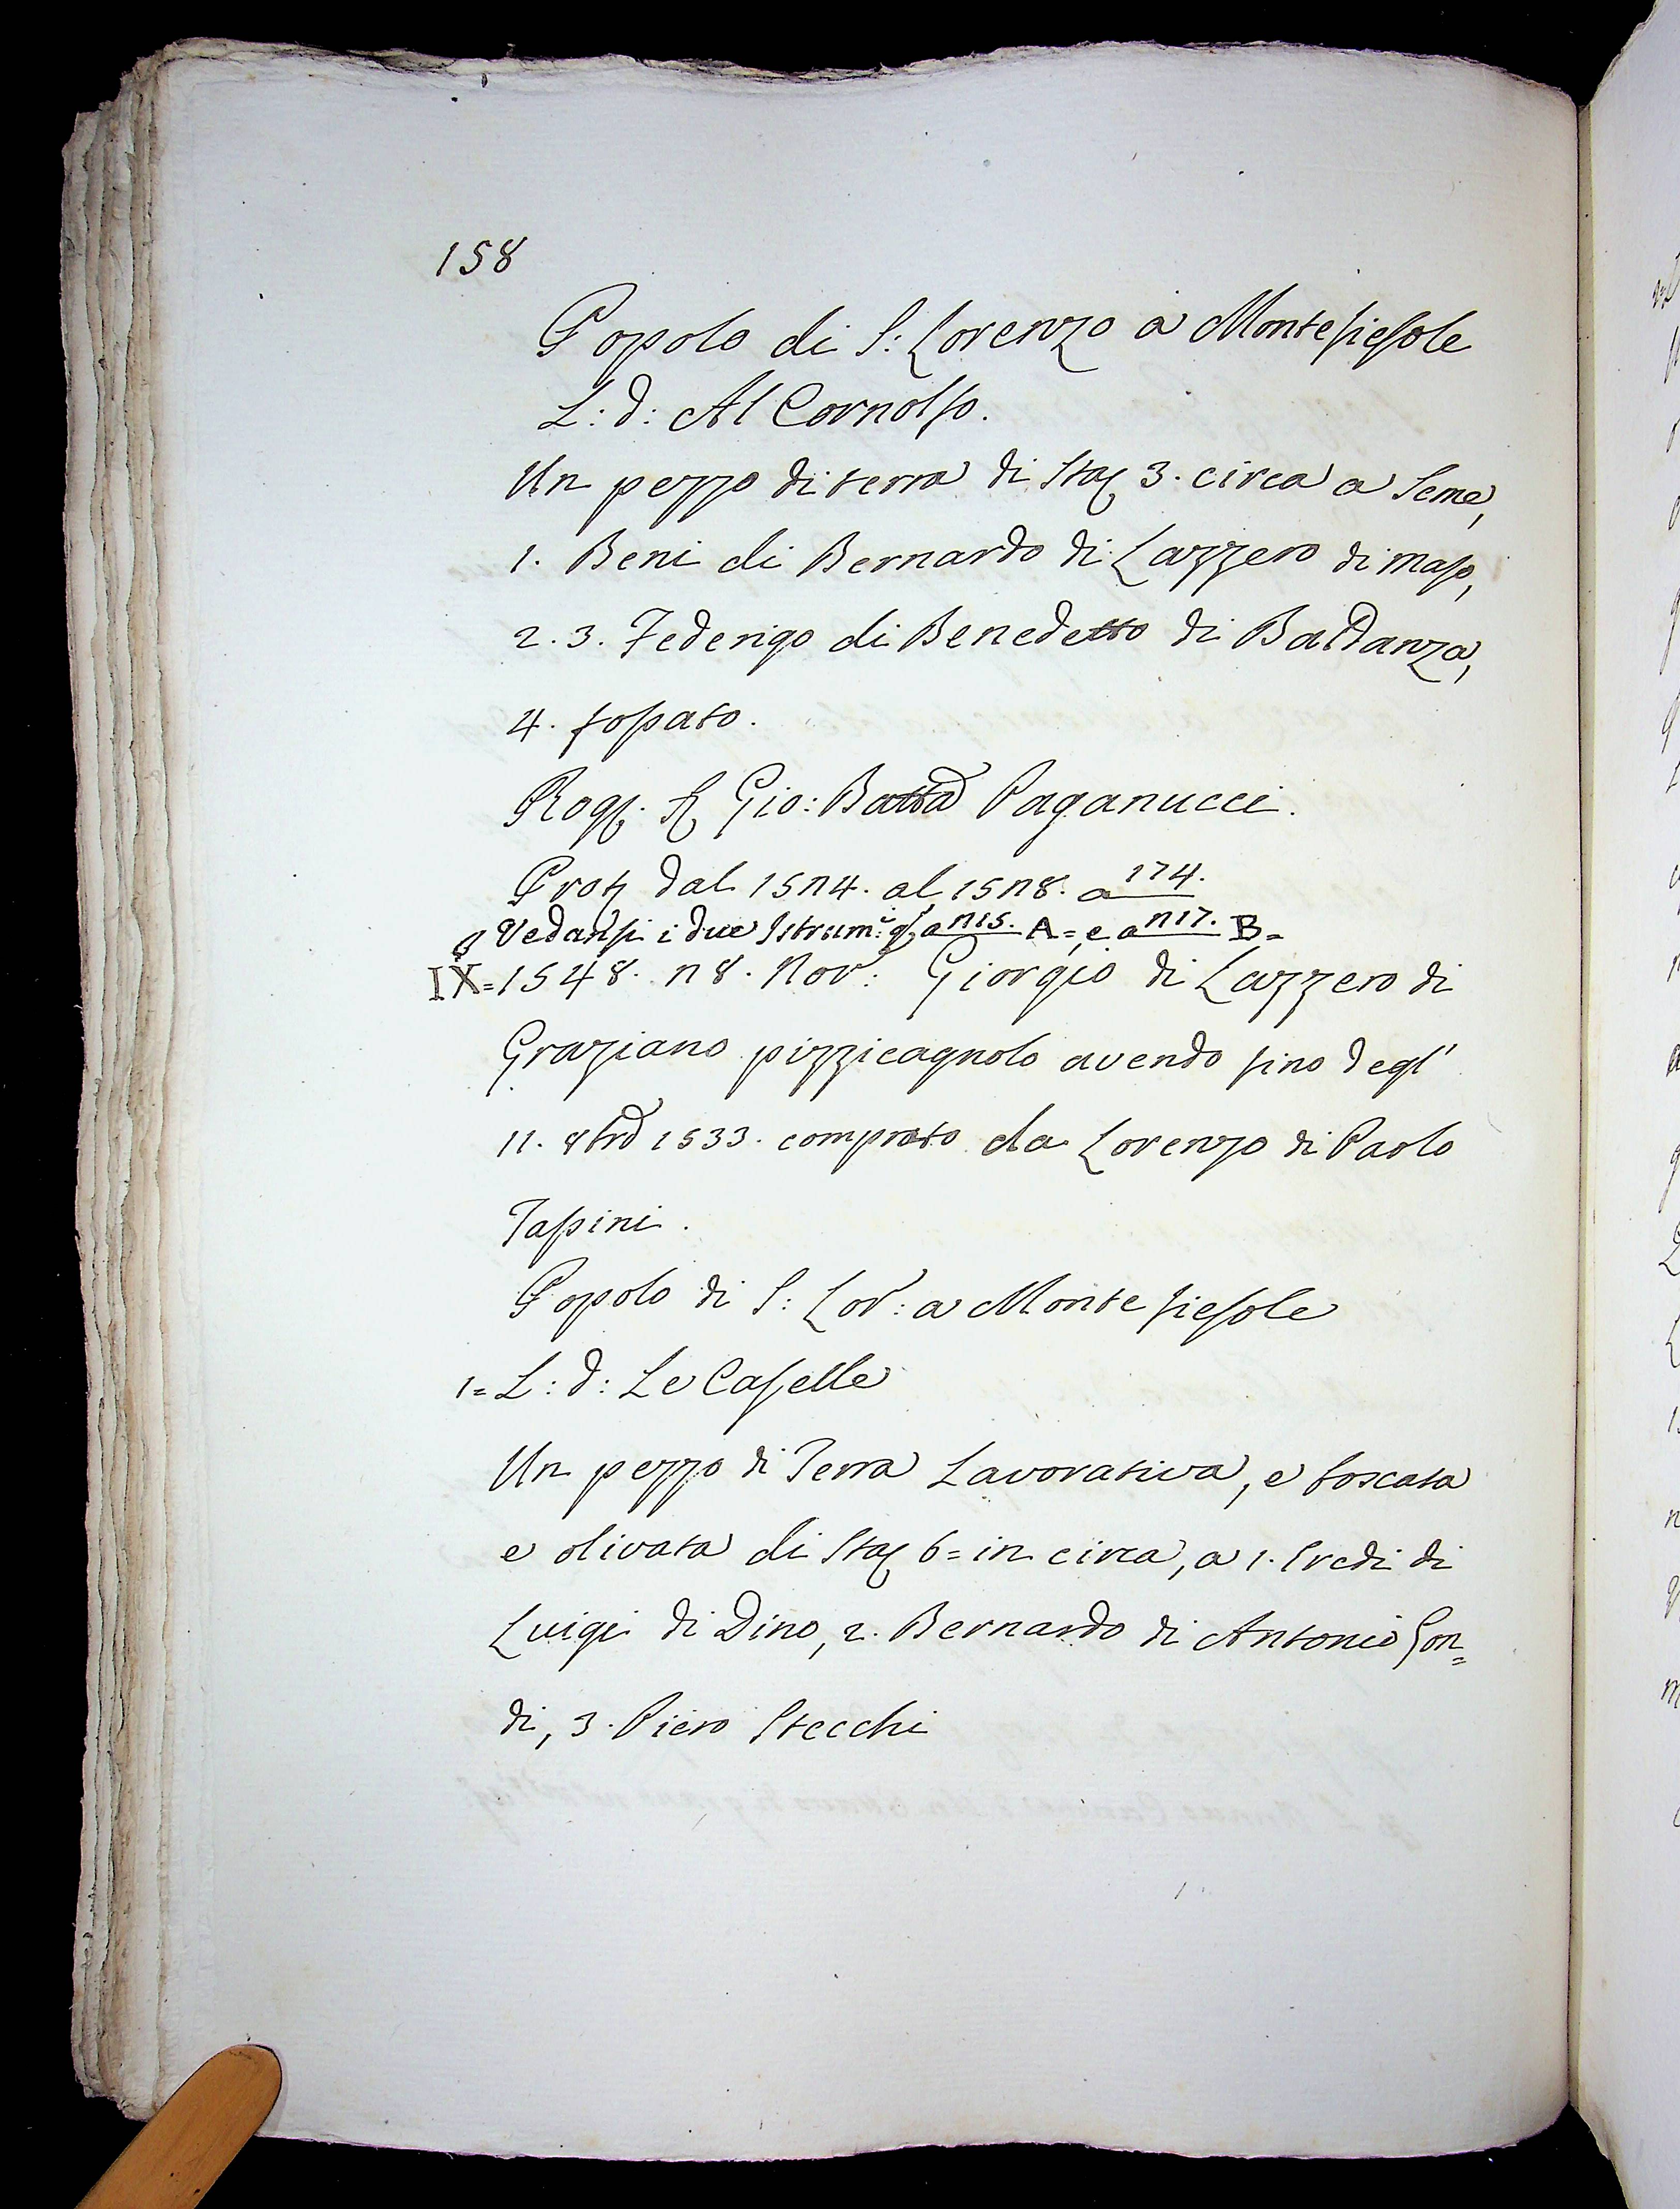 158
Popolo di S: Lorenzo a Montefiesole
L: d: Al Cornolso.
Un pezzo di terra di Sta 3. circa a Seme,
1. Beni di Bernardo di Lazzero di Maso,
2. 3. Federigo di Benedetto di Baldanza,
4. fossato.
Rog. Gio: Batta Paganucci.
Prot dal 1524. al 1528. a 174.
Vedansi i due Istrum: a 215. A= e a 217. B=
IX= 1548. 28. Nov: Giorgio di Lazzero di
Graziano pizzicagnolo avendo sino degl'
11. 8bre 1533. comprato da Lorenzo di Paolo
Tassini.
Popolo di S: Lor: a Monte fiesole
1= L: d: Le Caselle
Un pezzo di Terra Lavorativa, e boscata
e olivata di Sta 6= in circa, a 1. Eredi di
Luigi di Dino, 2. Bernardo di Antonio Gon=
di, 3. Piero Stecchi